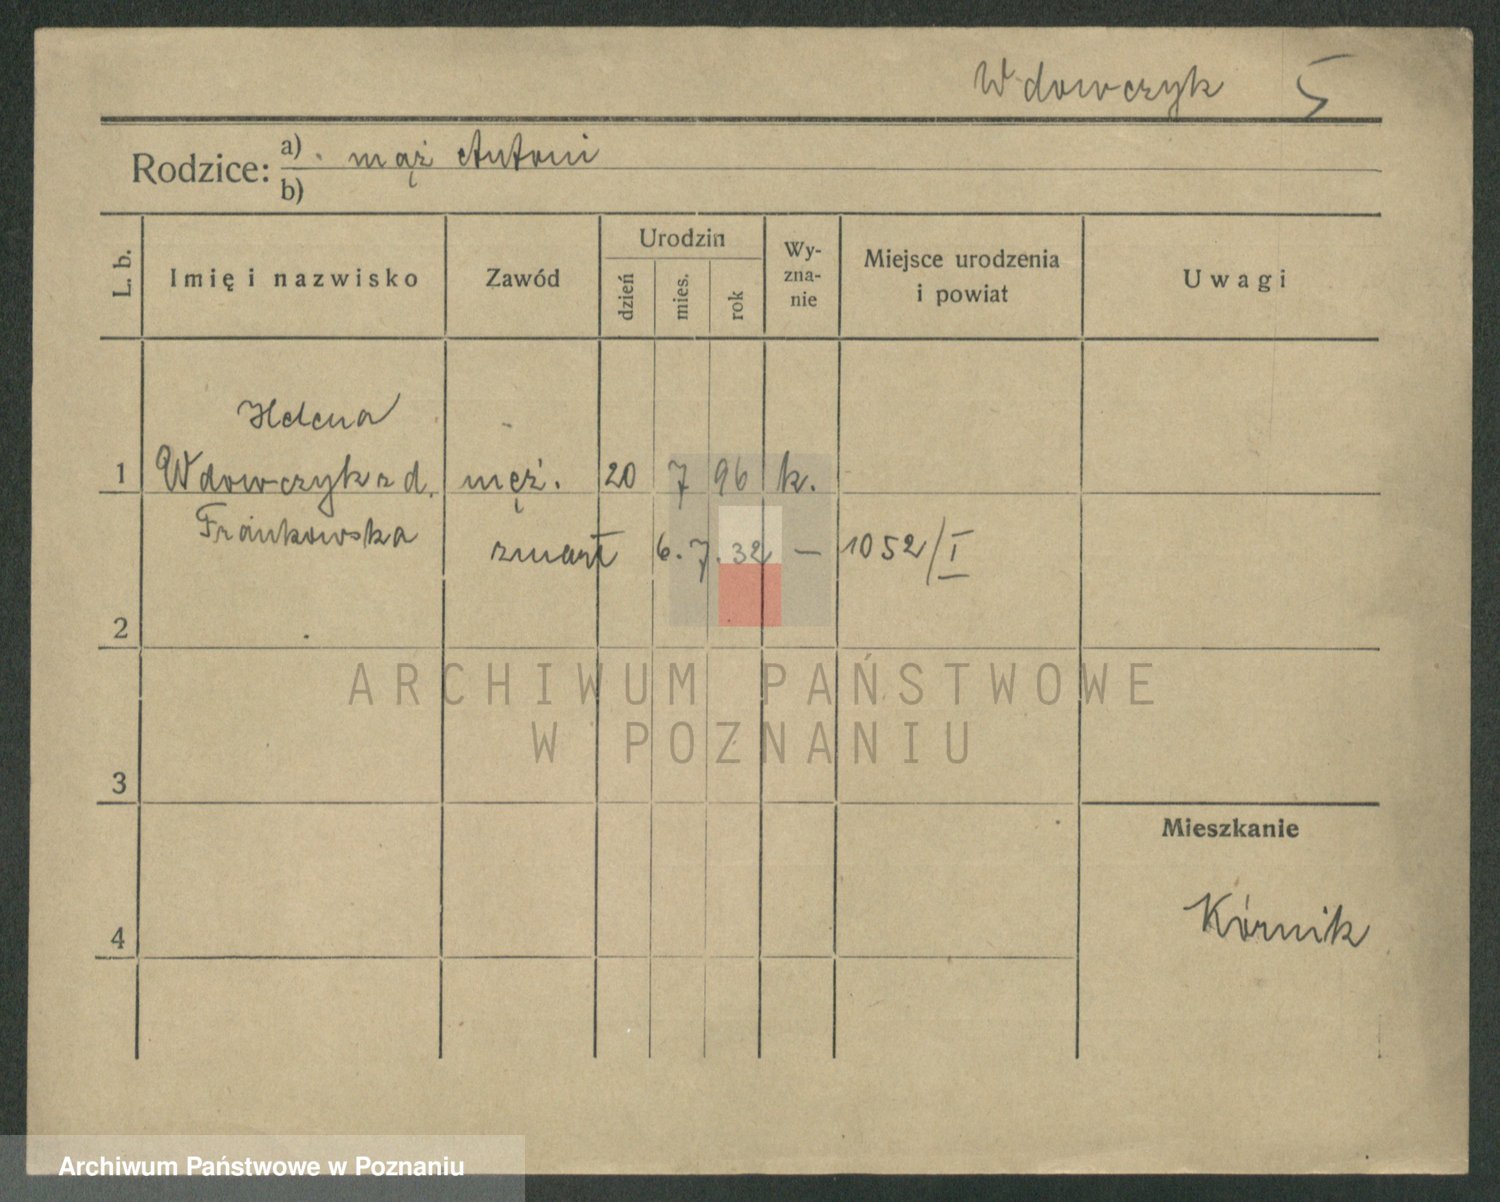 Wdowczyk 5
Rodzice: a) mąż Antoni
b)
L. b.
Imię i nazwisko
Zawód
Urodzin
dzień
mies.
rok
Wy-
zna-
nie
Miejsce urodzenia
i powiat
Uwagi
Helena
1 Wdowczyk z d. męż. 20 7 96 k.
Frankowska
zmarł 6. 7. 32 — 1052/I
2
ARCHIWUM PAŃSTWOWE
W POZNANIU
3
Mieszkanie
Kórnik
4
Archiwum Państwowe w Poznaniu